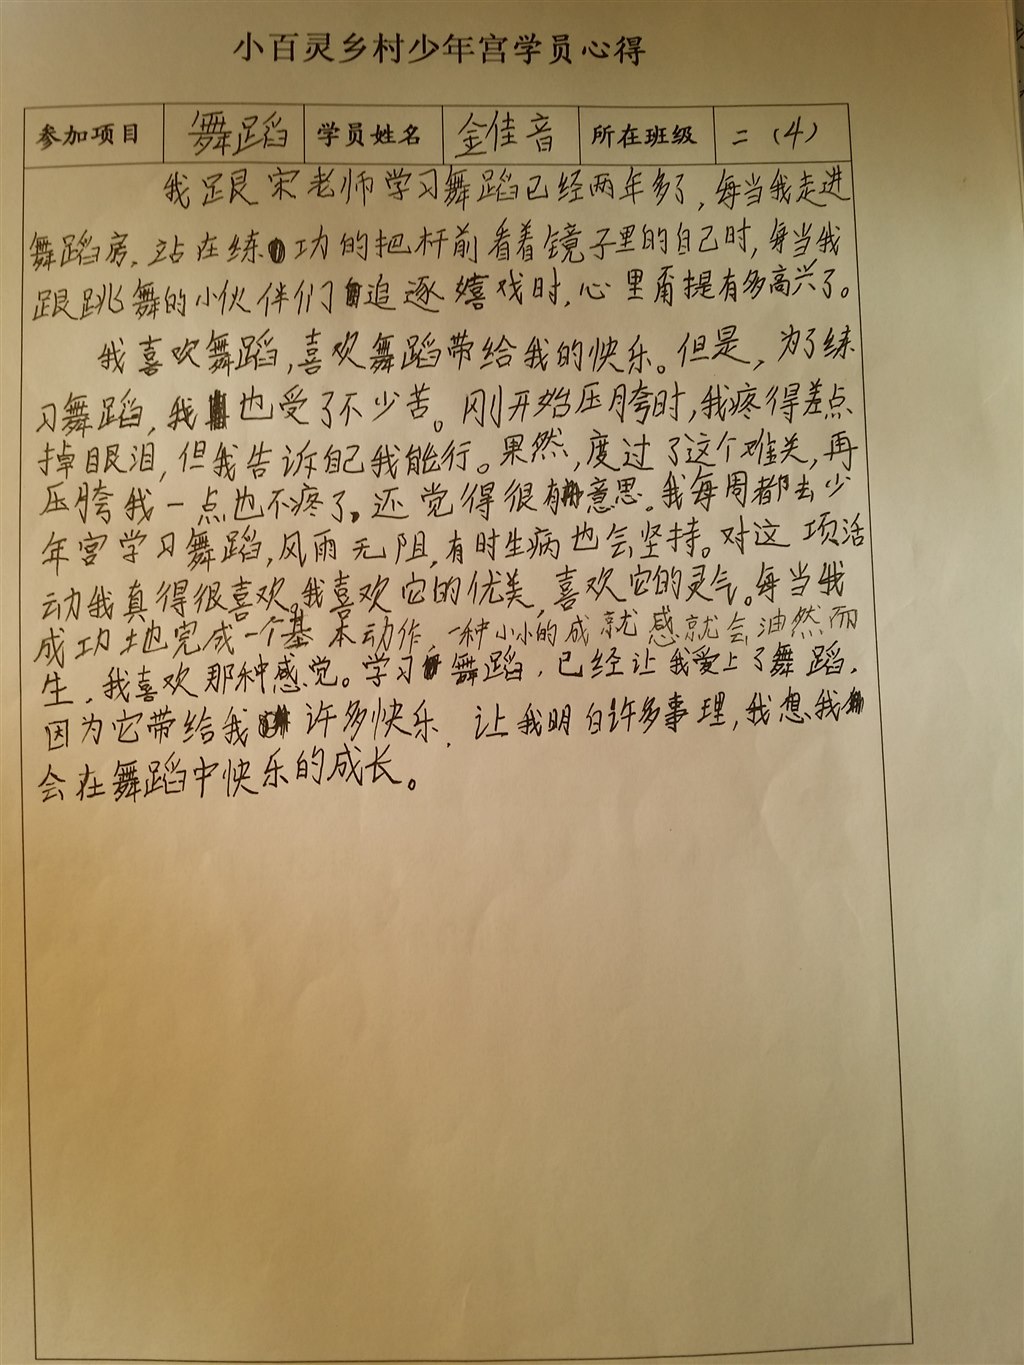 小百灵乡村少年宫学员心得
参加项目 舞蹈 学员姓名 金佳音 所在班级 二（4）
我跟宋老师学习舞蹈已经两年多了，每当我走进
舞蹈房，站在练功的把杆前看着镜子里的自己时，每当我
跟跳舞的小伙伴们追逐嬉戏时，心里甭提有多高兴了。
我喜欢舞蹈，喜欢舞蹈带给我的快乐。但是，为了练
习舞蹈，我也受了不少苦。刚开始压胯时，我疼得差点
掉眼泪，但我告诉自己我能行。果然，度过了这个难关，再
压胯我一点也不疼了，还觉得很有意思。我每周都去少
年宫学习舞蹈，风雨无阻，有时生病也会坚持。对这项活
动我真得很喜欢。我喜欢它的优美，喜欢它的灵气。每当我
成功地完成一个基本动作，一种小小的成就感就会油然而
生，我喜欢那种感觉。学习舞蹈，已经让我爱上了舞蹈，
因为它带给我许多快乐，让我明白许多事理，我想我
会在舞蹈中快乐的成长。